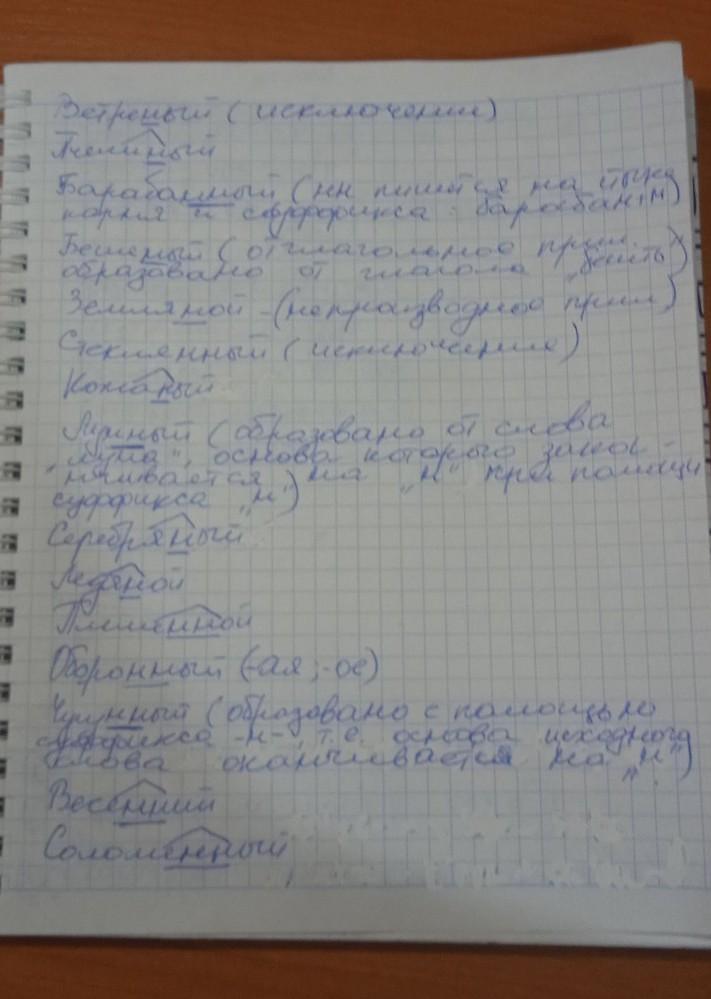 Ветреный (исключение)
Пчелиный
Барабанный (нн пишется на стыке
корня и суффикса: барабан+н)
Бешеный (отглагольное прил.
образовано от глагола „бесить")
Земляной - (непроизводное прил)
Стеклянный (исключение)
Кожаный
Лунный (образовано от слова
„луна", основа которого закан-
чивается на „н" при помощи
суффикса „н")
Серебряный
Ледяной
Пшеннной
Оборонный (-ая; -ое)
Чугунный (образовано с помощью
суффикса -н-, т.е. основа исходного
слова оканчивается на „н")
Весенний
Соломенный